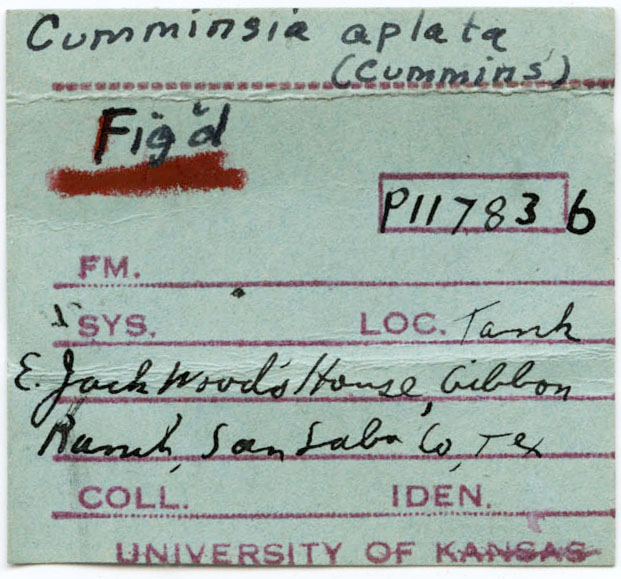 Cumminsia aplata
(Cummins)
Fig'd
P11783 b
FM.
SYS. LOC. Tank
E. Jack Wood's House, Gibbon
Ranch, San Saba Co, Tex
COLL. IDEN.
UNIVERSITY OF KANSAS